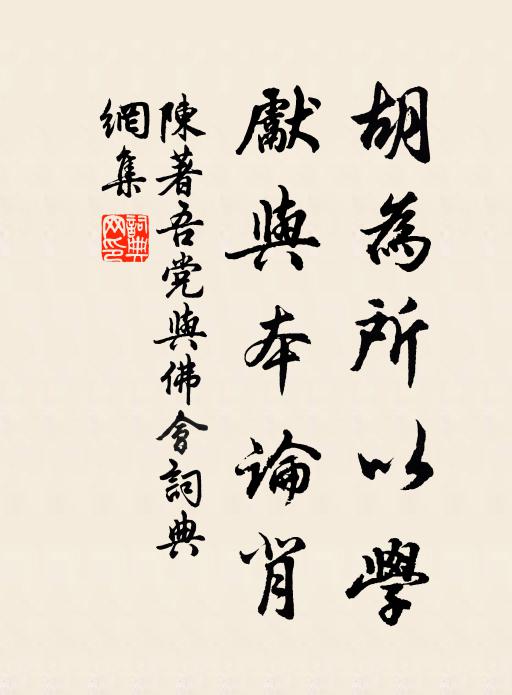 胡為所以學
獻與本論背
陳著吾党與佛會詞典
網集
詞典網印